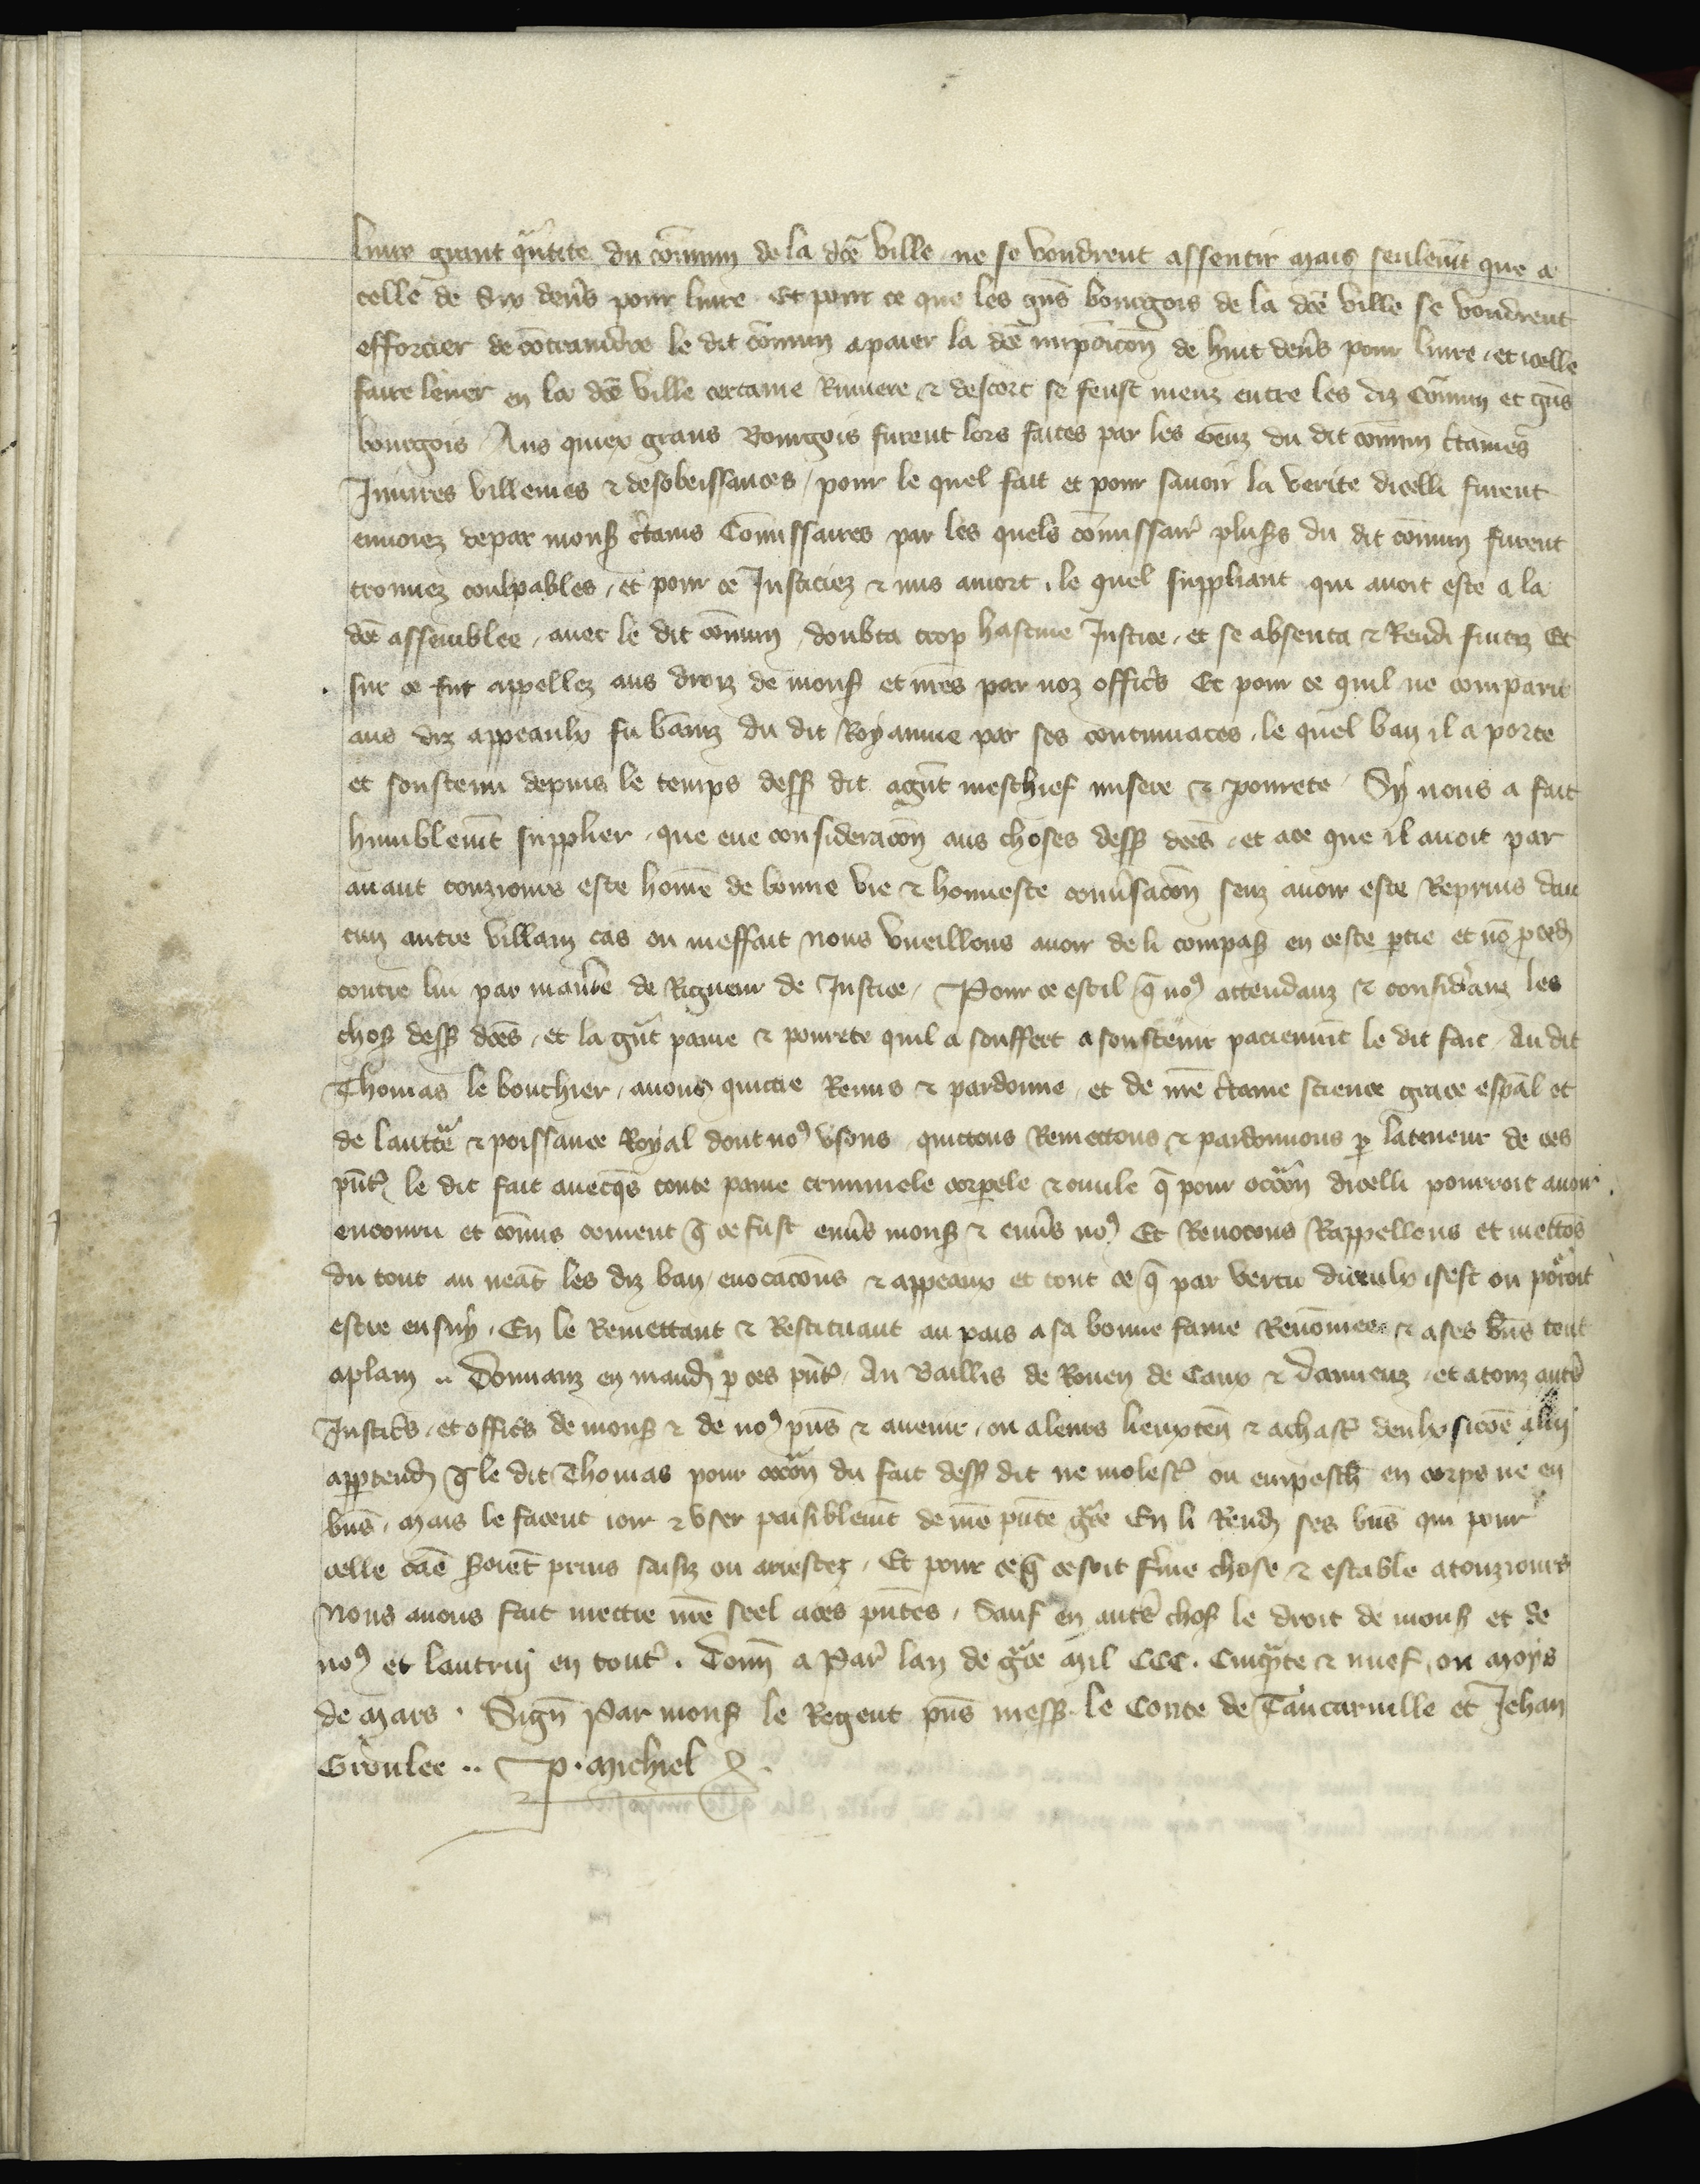 livre grant qũtite du cõmun de la dcẽ ville ne se voudrent assentir mais seulemt que a
celle de six deñs pour livre. Et pour ce que les gñs bourgois de la dcẽ ville se voudrent
efforcier de cõtraindre le dit cõmun apaier la dcẽ imposicõn de huit deñs pour livre, et icelle
faire lever en la dcẽ ville certaine Rumeur & descort se feust meuz entre les diz Cõmun et gñs
bourgois Aus quiex grans Bourgois furent lors faites par les Genz du dit cõmun ctaines
Iniures villenies & desobeissances, pour le quel fait et pour savoir la verite dicelli furent
envoiez depar mons ctains Cõmissaires par les quels cõmissair plus's du dit cõmun furent
trouvez coulpables, et pour ce Justiciez & mis amort, le quel suppliant qui avoit este a la
dcẽ assemblee, avec le dit cõmun, doubta trop hastive Justice, et se absenta & Rendi fuitiz Et
sur ce fut appellez aus droiz de mons et nr̃es par noz offic's Et pour ce quil ne comparit
aus diz appeaulx fu baniz du dit Royaume par ses contumaces, le quel ban il a porte
et soustenu depuis le temps dess dit agñt meschief misere & povrete Sy nous a fait
humblemt supplier, que eue consideracõn aus choses dess dcẽs, et ace que il avoit par
avant touziours este hom̃e de bonne vie & honneste cõnv'sacõn senz avoir este Reprins dau
cun autre villain cas ou meffait nous vueillons avoir deli compass en ceste ptie et nõ pced
contre lui par mañiẽ de Rigueur de Justice, Pour ce est il q̃ no9 attendanz & consid'anz les
chos dess dcẽs, et la gñt paine & povrete quil a souffert a soustenir paciemmt le dit fait Audit
Thomas le bouchier, avons quictie Remis & pardonne, et de nr̃e ctaine science grace esp̃al et
de lauctẽ & poissance Royal dont no9 usons quittons Remettons & pardonnons p lateneur de ces
pñt' le dit fait avecq̃s toute paine criminele corpele & civile q̃ pour occõn dicelli pourroit avoir
encouru et cõmis coment q̃ ce fust env's mons & env's no9 Et Revocons Rappellons et mettõs
du tout au neãt les diz ban evocacõns & appeaux et tout ce q̃ par vertu diceulx isest ou poroit
estre ensuy. En le Remettant & Restituant au pais asa bonne fame Renõmee & ases bñs tout
aplain .. Donnanz en mand p ces pñt' Au Baillis de Rouen de Caux & Damienz et atouz autr'
Justic's, et offic's de mons & de no9 pñs & avenir, ou aleurs lieuxteñ & achast' deulx sicõe a luy
appertend q̃ le dit Thomas pour occõn du fait dess dit ne molest' ou empesch en corps ne en
bñs, mais le facent ioir & user paisiblemt de nr̃e pñte gce En li Rend ses bñs qui pour
celle cãe s'oient prins saisiz ou arrestez, Et pour ceq̃ cesoit f'me chose & estable atouziours
Nous avons fait mettre nr̃e seel aces pñtes, Sauf en autr' chos le droit de mons et de
no9 et lautruy en tout'. Donñ a Par' lan de gce Mil CCC. Cinq̃te & nuef, ou Moys
de Mars. Sigñ Par mons le Regent pñs mess. le Conte de Tancarville et Jehan
Giroulee .. P. Michiel